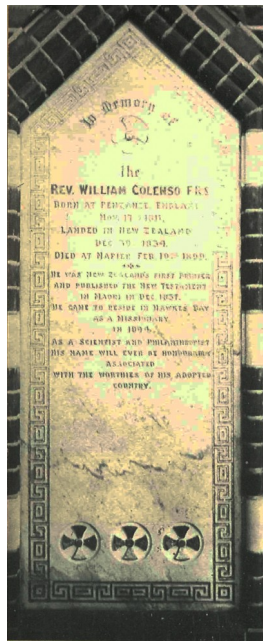 In Memory of
The
REV. WILLIAM COLENSO F.R.S
BORN AT PENZANCE, ENGLAND
NOV. 17 1811.
LANDED IN NEW ZEALAND
DEC 30 1834.
DIED AT NAPIER FEB. 10TH 1899.
HE WAS NEW ZEALAND'S FIRST PRINTER
AND PUBLISHED THE NEW TESTAMENT
IN MAORI IN DEC. 1837.
HE CAME TO RESIDE IN HAWKES BAY
AS A MISSIONARY,
IN 1844.
AS A SCIENTIST AND PHILANTHROPIST
HIS NAME WILL EVER BE HONOURABLY
ASSOCIATED
WITH THE WORTHIES OF HIS ADOPTED
COUNTRY.